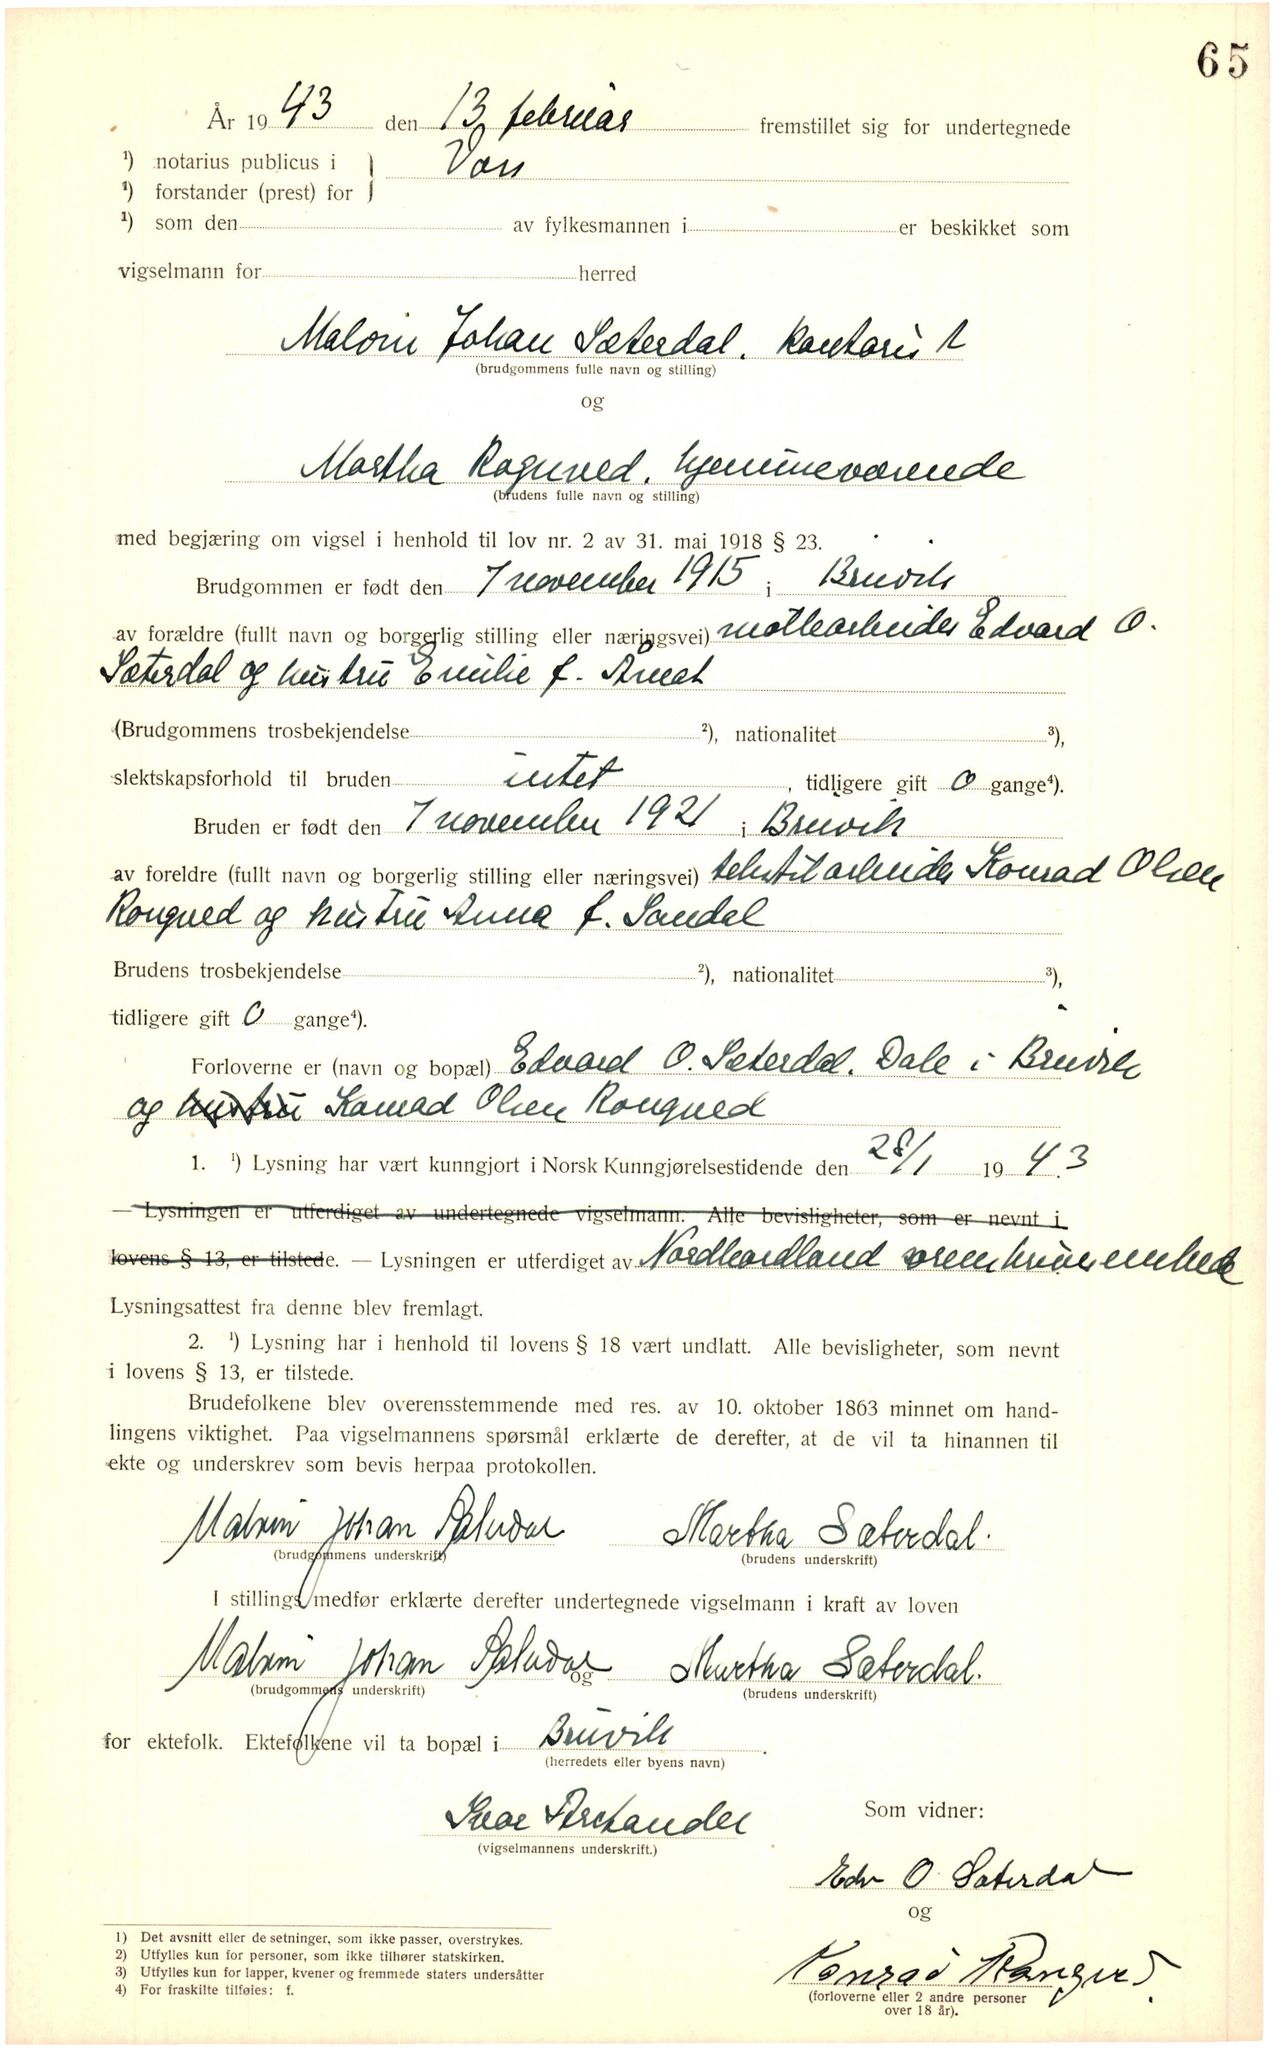 65
År 1943 den 13 februar fremstillet sig for undertegnede
1) notarius publicus i } Voss
1) forstander (prest) for
1) som den av fylkesmannen i er beskikket som
vigselmann for herred
Malvin Johan Sæterdal. kontorist
(brudgommens fulle navn og stilling)
og
Martha Rognved. hjemmeværende
(brudens fulle navn og stilling)
med begjæring om vigsel i henhold til lov nr. 2 av 31. mai 1918 § 23.
Brudgommen er født den 7 november 1915 i Bruvik
av forældre (fullt navn og borgerlig stilling eller næringsvei) Edvard O.
Sæterdal og hustru Emilie f.
(Brudgommens trosbekjendelse 2), nationalitet 3),
slektskapsforhold til bruden intet, tidligere gift 0 gange4).
Bruden er født den 7 november 1921 i Bruvik
av foreldre (fullt navn og borgerlig stilling eller næringsvei) tekstilarbeider Konrad Olsen
Rongved og hustru Anna f. Sandal
Brudens trosbekjendelse 2), nationalitet 3),
tidligere gift 0 gange4).
Forloverne er (navn og bopæl) Edvard O. Sæterdal. Dale i Bruvik
og hustru Konrad Olsen Rongved
1. 1) Lysning har vært kunngjort i Norsk Kunngjørelsestidende den 28/1 1943
— Lysningen er utferdiget av undertegnede vigselmann. Alle bevisligheter, som er nevnt i
lovens § 13, er tilstede. — Lysningen er utferdiget av Nordhordland sorenskriverembede
Lysningsattest fra denne blev fremlagt.
2. 1) Lysning har i henhold til lovens § 18 vært undlatt. Alle bevisligheter, som nevnt
i lovens § 13, er tilstede.
Brudefolkene blev overensstemmende med res. av 10. oktober 1863 minnet om hand-
lingens viktighet. Paa vigselmannens spørsmål erklærte de derefter, at de vil ta hinannen til
ekte og underskrev som bevis herpaa protokollen.
Malvin Johan Sæterdal Martha Sæterdal.
(brudgommens underskrift) (brudens underskrift)
I stillings medfør erklærte derefter undertegnede vigselmann i kraft av loven
Malvin Johan Sæterdal og Martha Sæterdal.
(brudgommens underskrift) (brudens underskrift)
for ektefolk. Ektefolkene vil ta bopæl i Bruvik.
(herredets eller byens navn)
Ivar
(vigselmannens underskrift.)
Som vidner:
Edv O Sæterdal
og
Konrad Rongved.
(forloverne eller 2 andre personer
over 18 år).
1) Det avsnitt eller de setninger, som ikke passer, overstrykes.
2) Utfylles kun for personer, som ikke tilhører statskirken.
3) Utfylles kun for lapper, kvener og fremmede staters undersåtter
4) For fraskilte tilføies: f.